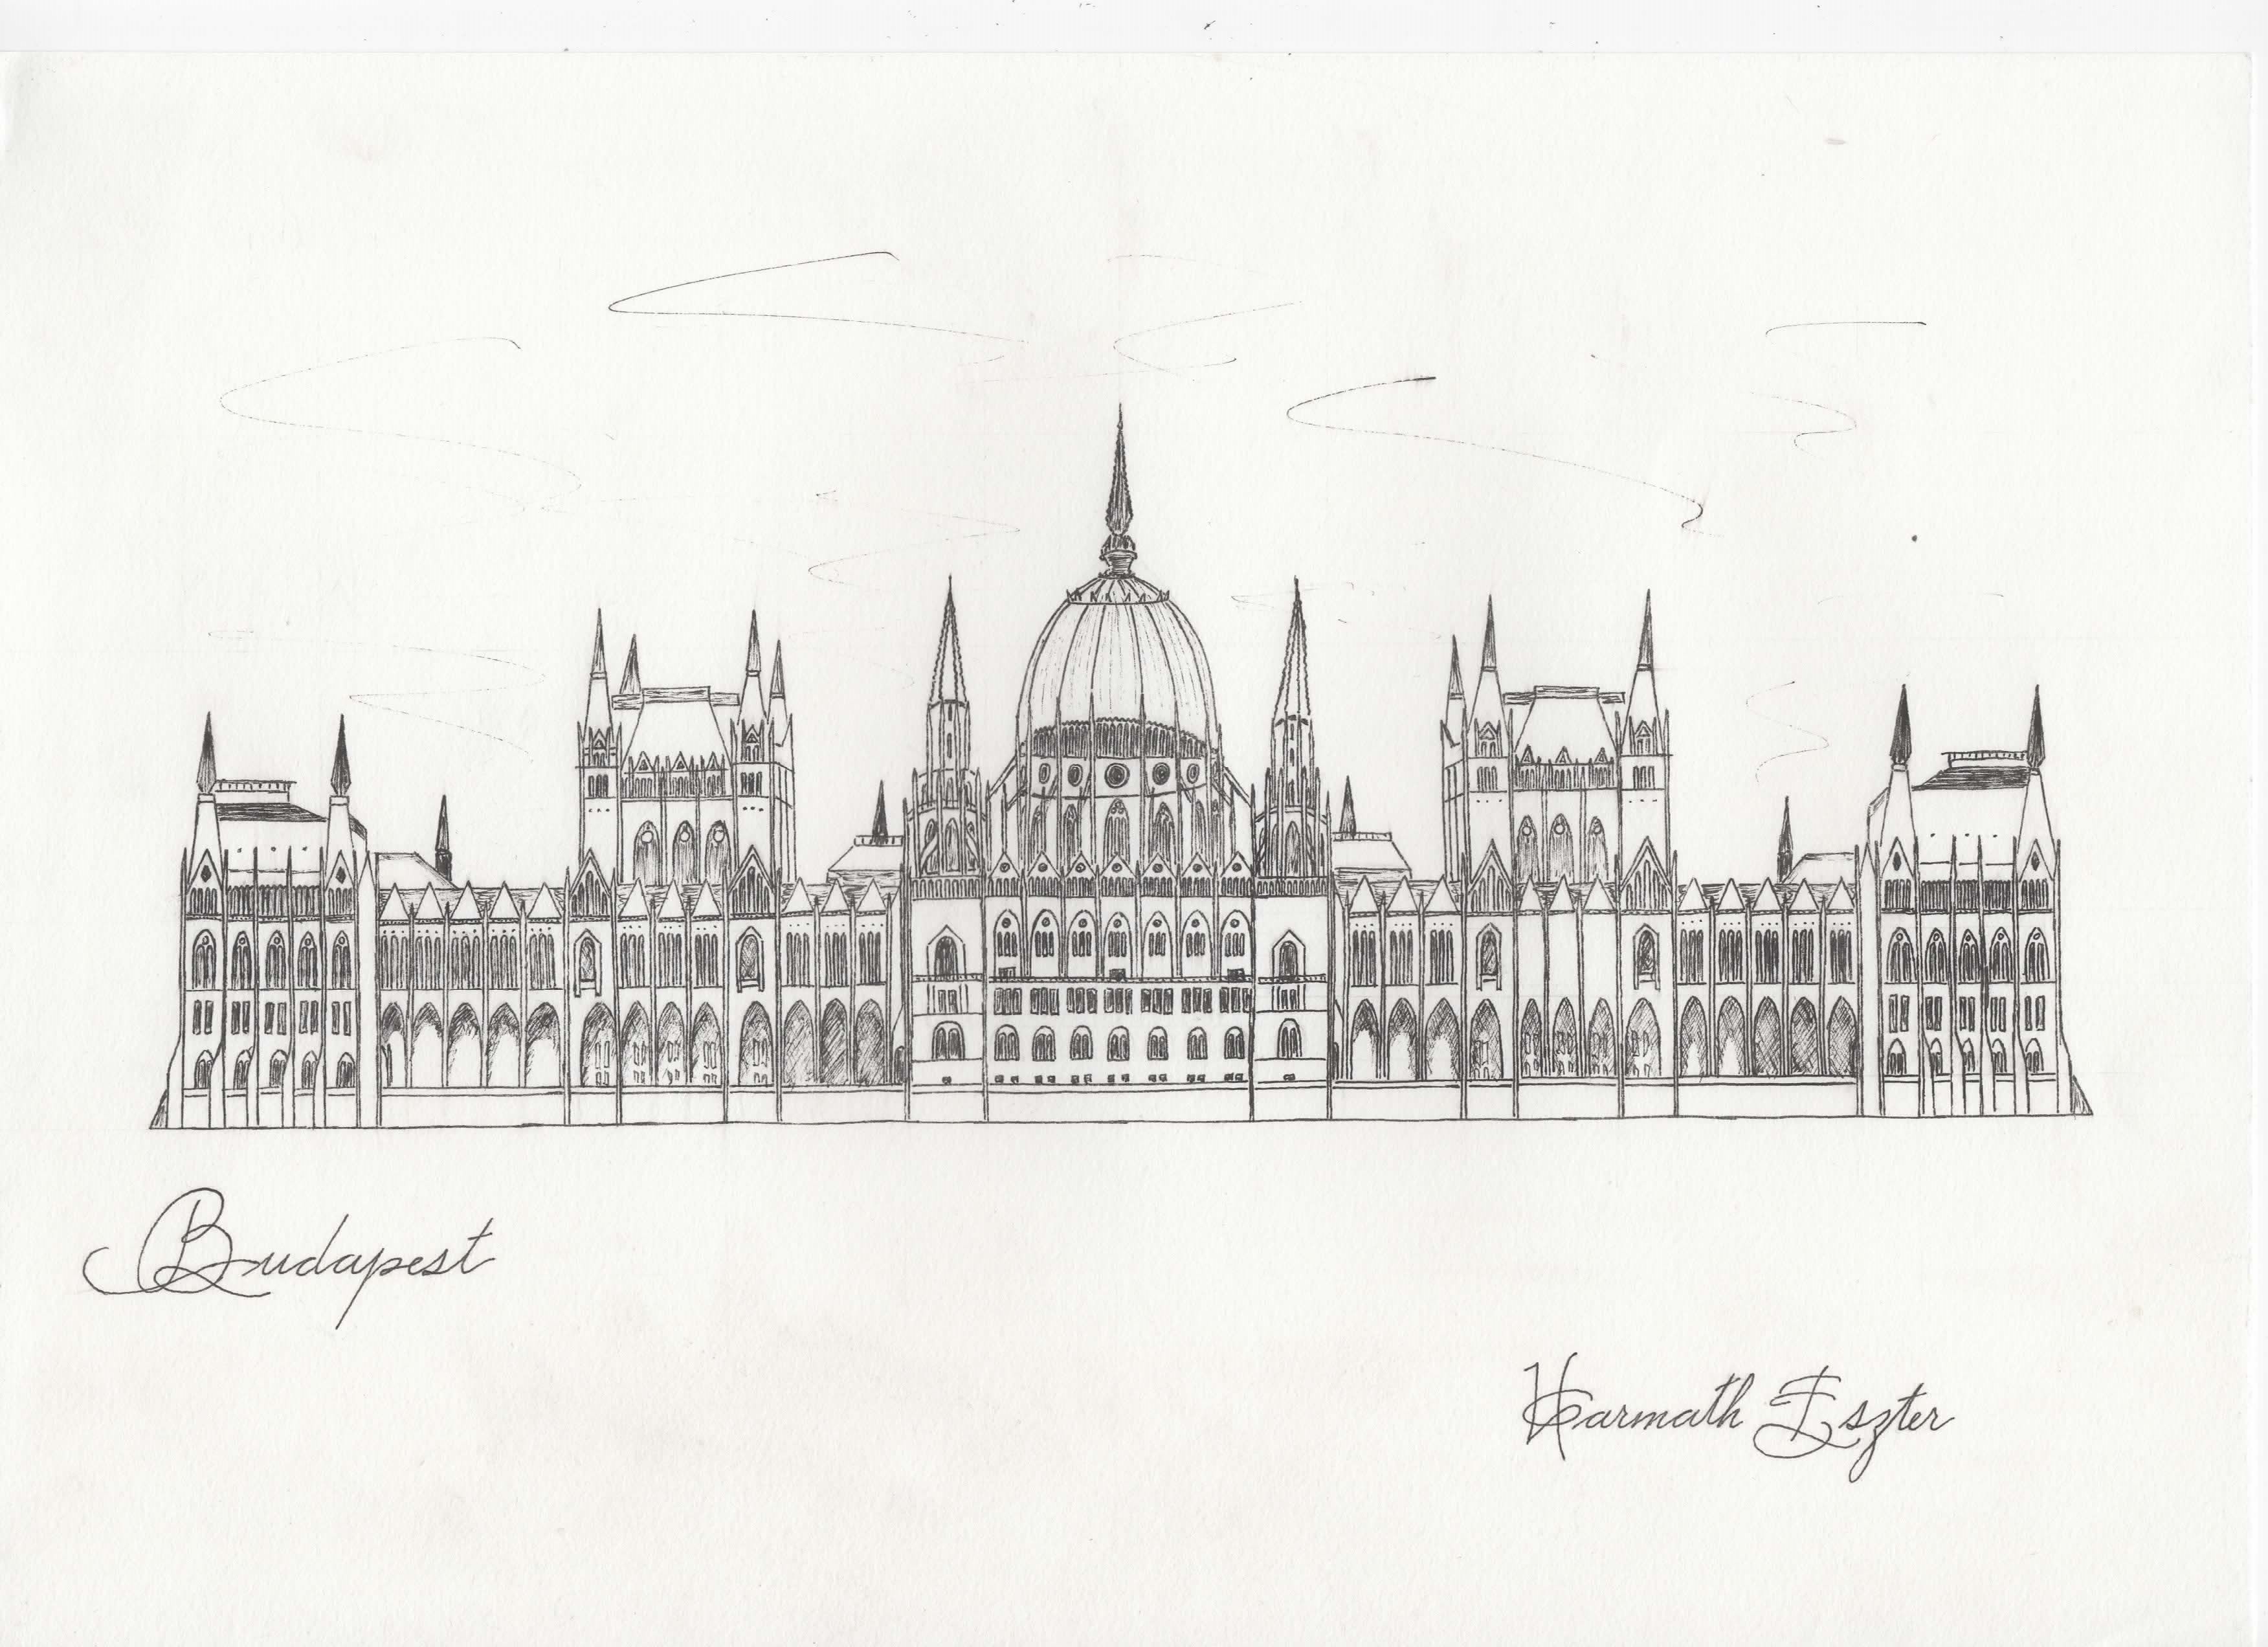 Budapest
Harmath Eszter